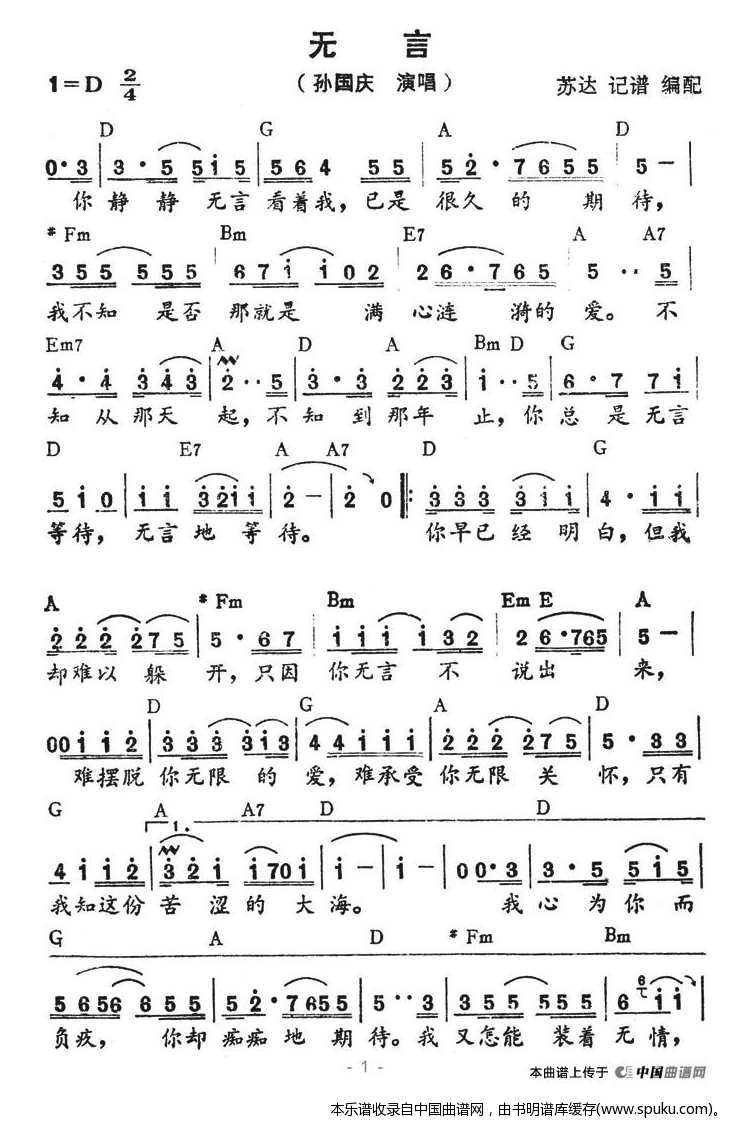 无 言
1=D 2/4 (孙国庆 演唱) 苏达 记谱 编配
D G A D
0·3 3·5 5i5 564 55 52·7655 5—
你静静无言看着我，已是很久的期待，
#Fm Bm E7 A A7
355 555 67i i02 26·765 5··5
我不知是否那就是满心涟漪的爱。不
Em7 A D A Bm D G
4·4 343 2··5 3·3 223 i··5 6·7 7i
知从那天起，不知到那年止，你总是无言
D E7 A A7 D G
5i0 ii 32ii 2— 2 0 333 3ii 4·ii
等待，无言地等待。你早已经明白，但我
A #Fm Bm Em E A
222275 5·67 iiii i32 26·765 5—
却难以躲开，只因你无言不说出来，
D G A D
00ii2 3333i3 44iii 222275 5·33
难摆脱你无限的爱，难承受你无限关怀，只有
G A A7 D D
1.
4ii2 32i i70i i— i— 00·3 3·5 5i5
我知这份苦涩的大海。我心为你而
G A D #Fm Bm
5656655 52·7655 5··3 355 555 6ii
负疚，你却痴痴地期待。我又怎能装着无情，
- 1 -
本曲谱上传于 中国曲谱网
本乐谱收录自中国曲谱网，由书明谱库缓存(www.spuku.com)。